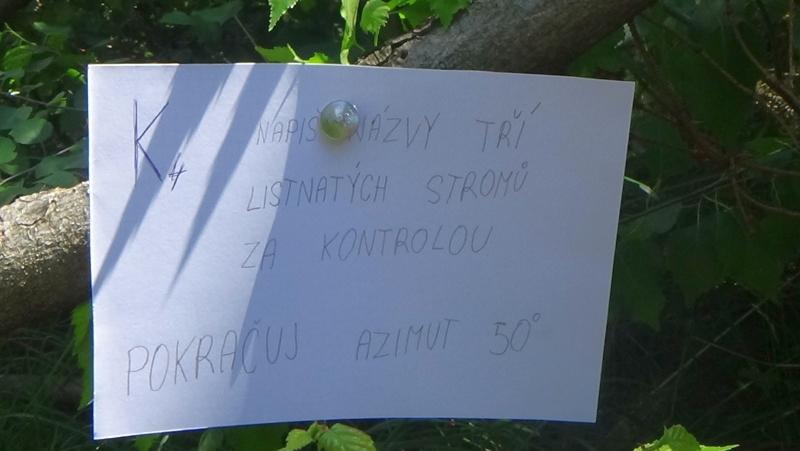 K4 NAPIŠ NÁZVY TŘÍ
LISTNATÝCH STROMŮ
ZA KONTROLOU
POKRAČUJ AZIMUT 50°